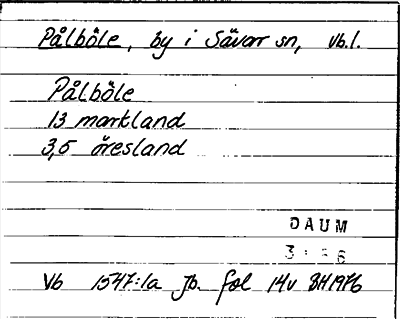 Pålböle, by i Sävar sn, Vb.l.
Pålböle
13 markland
3,5 öresland
DAUM
Vb 1547:1a Jb. fol 14v BH1976